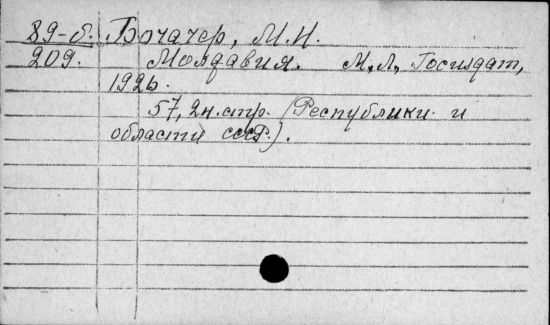 89-б. Бочачер, М.Н.
209. Молдавия. М,Л, Госиздат,
1926.
57, 2н.стр. (Республики и
области СССР.).